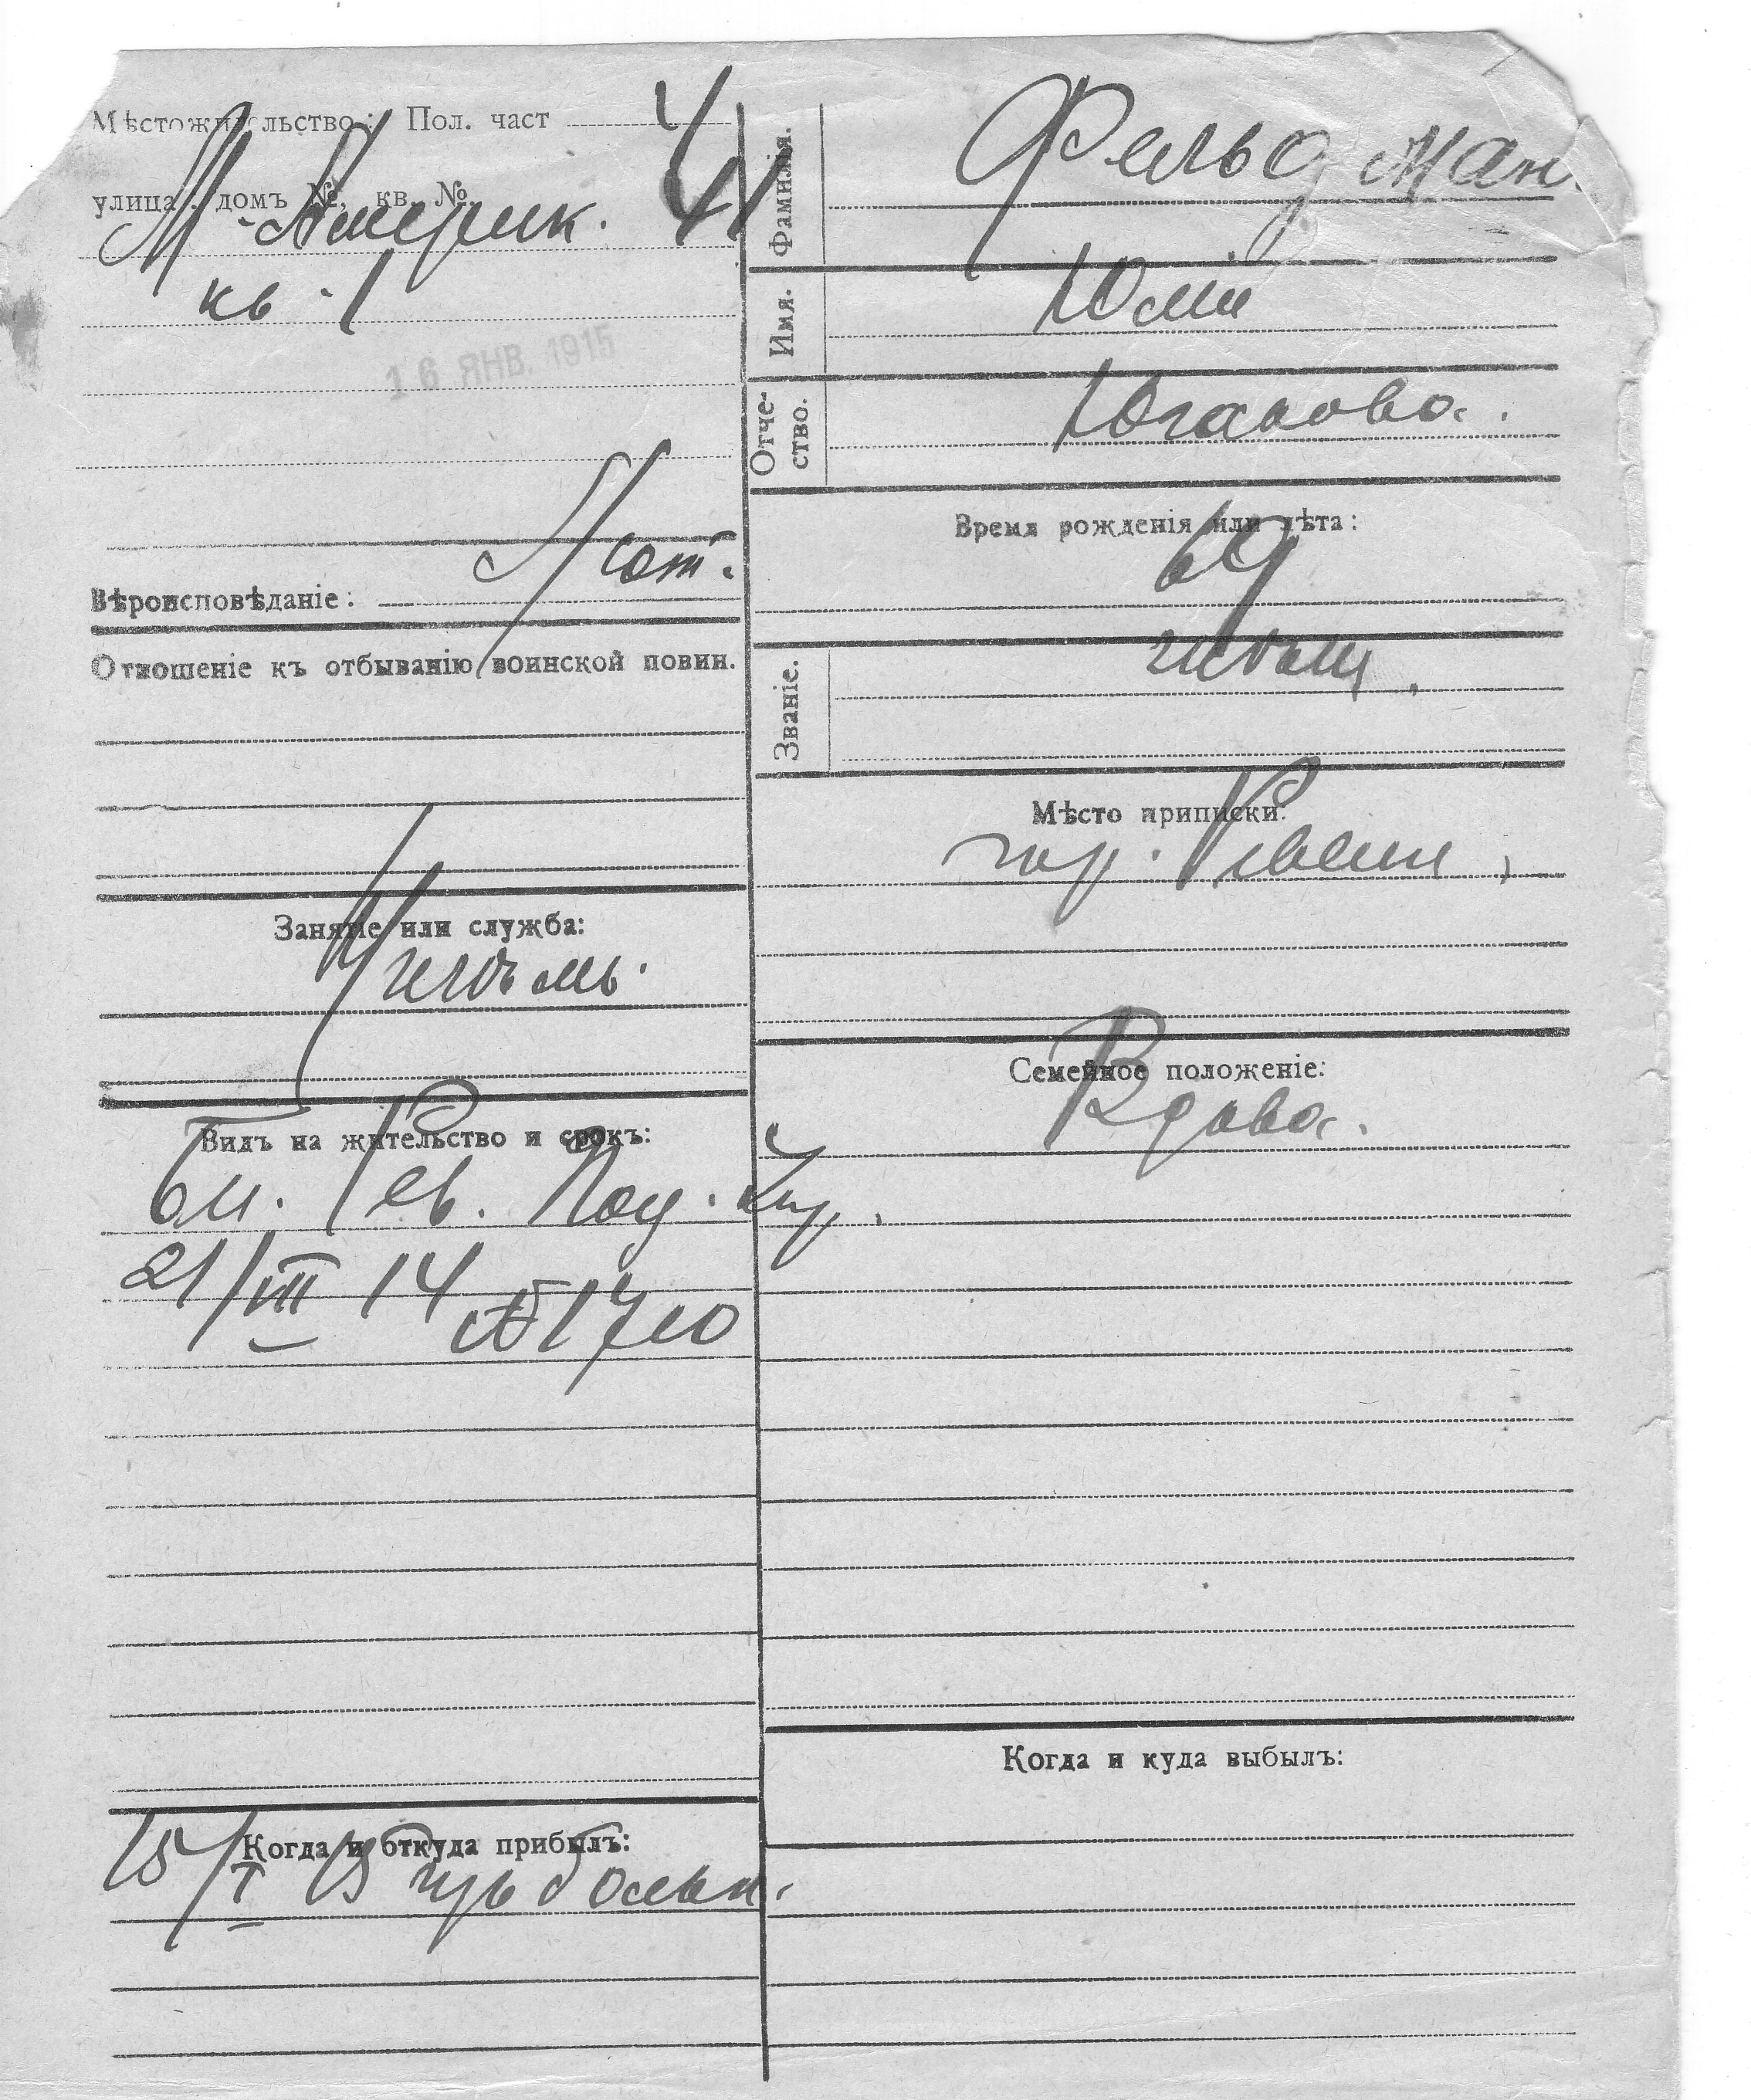 Мѣстожительство: Пол. част 4
улица, домъ №, кв. №
М-Америк. 4
кв. 1
16 ЯНВ. 1915
Вѣроисповѣданіе: Лют.
Отношеніе къ отбыванію воинской повин.
Занятіе или служба:
Видъ на жительство и срокъ:
бл. Рев. Под. Упр.
21/III 14 № 1710
Когда и откуда прибылъ:
15/I 15 изъ больн.
Фамилія. Фельдман
Имя. Юлія
Отчество. Юганова.
Время рожденія или лѣта:
69
Званіе. мѣщ.
Мѣсто приписки:
гор. Ревеля,
Семейное положеніе:
Вдова.
Когда и куда выбылъ: